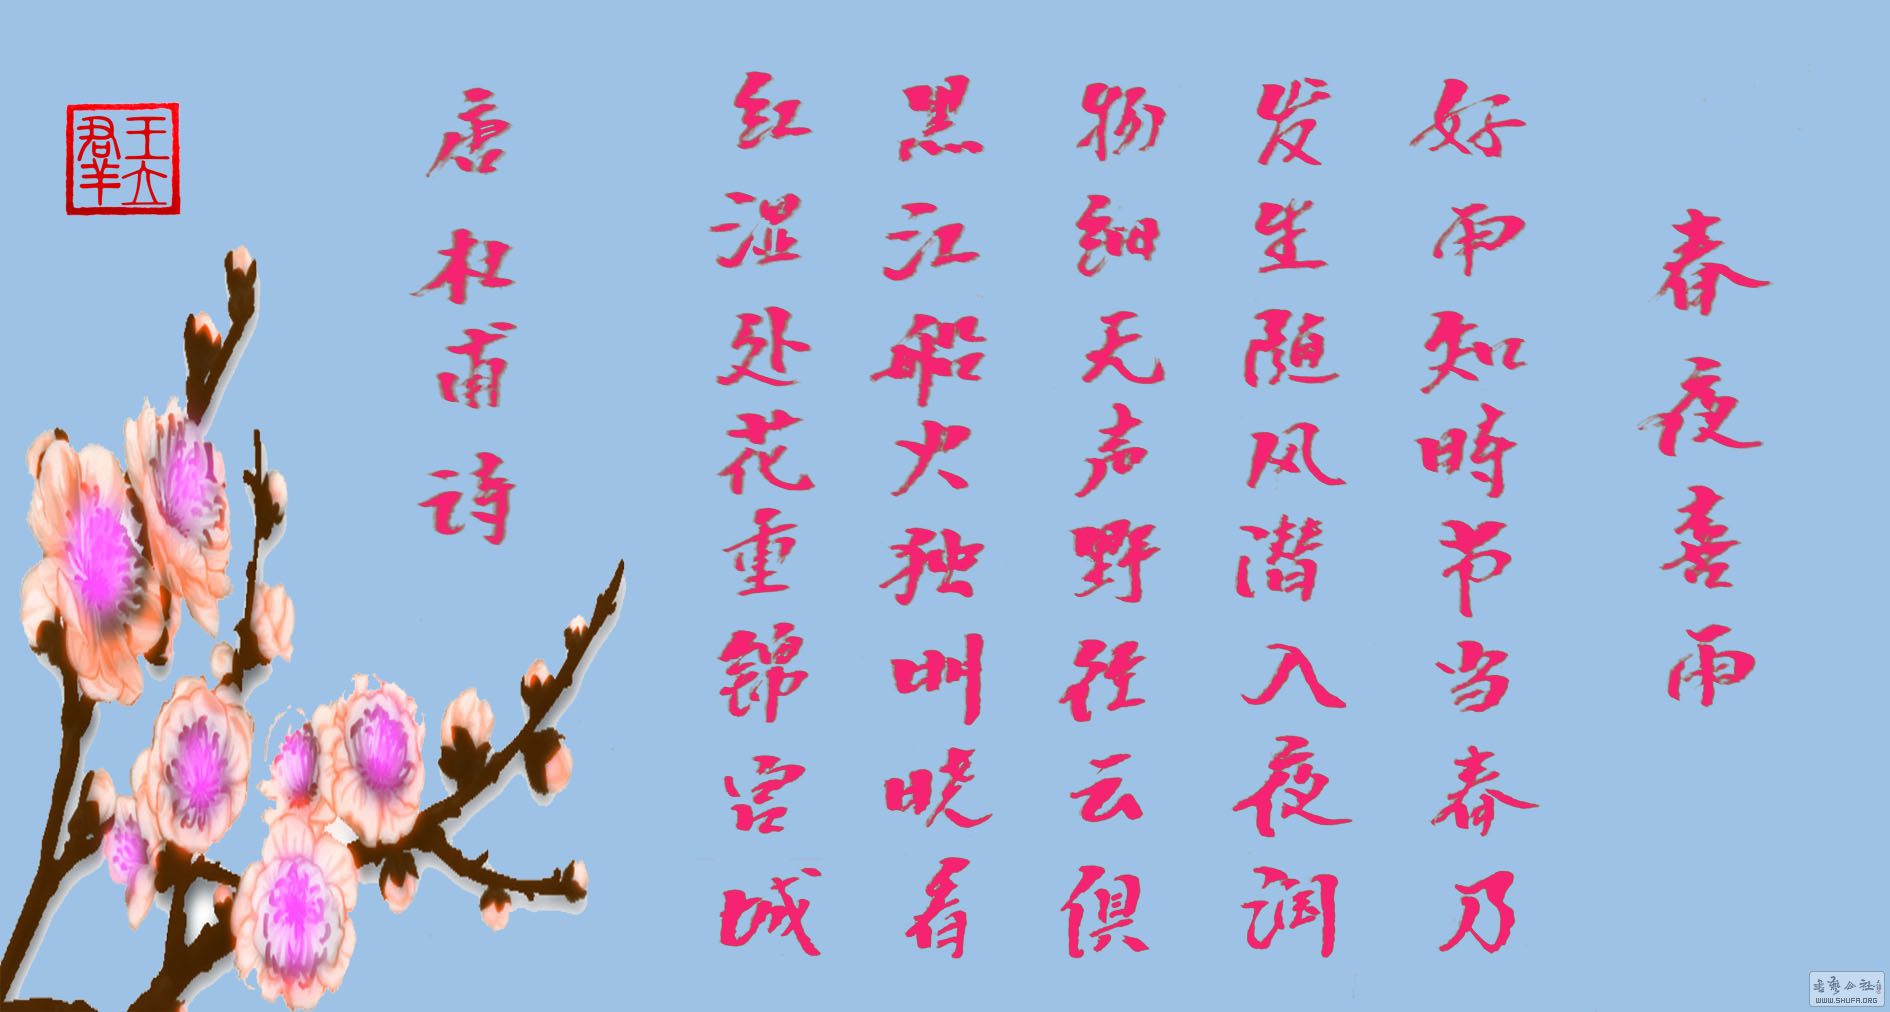 春夜喜雨
好雨知时节当春乃
发生随风潜入夜润
物细无声野径云俱
黑江船火独明晓看
红湿处花重锦宫城
唐杜甫诗
王立群
WWW.SHUFA.ORG